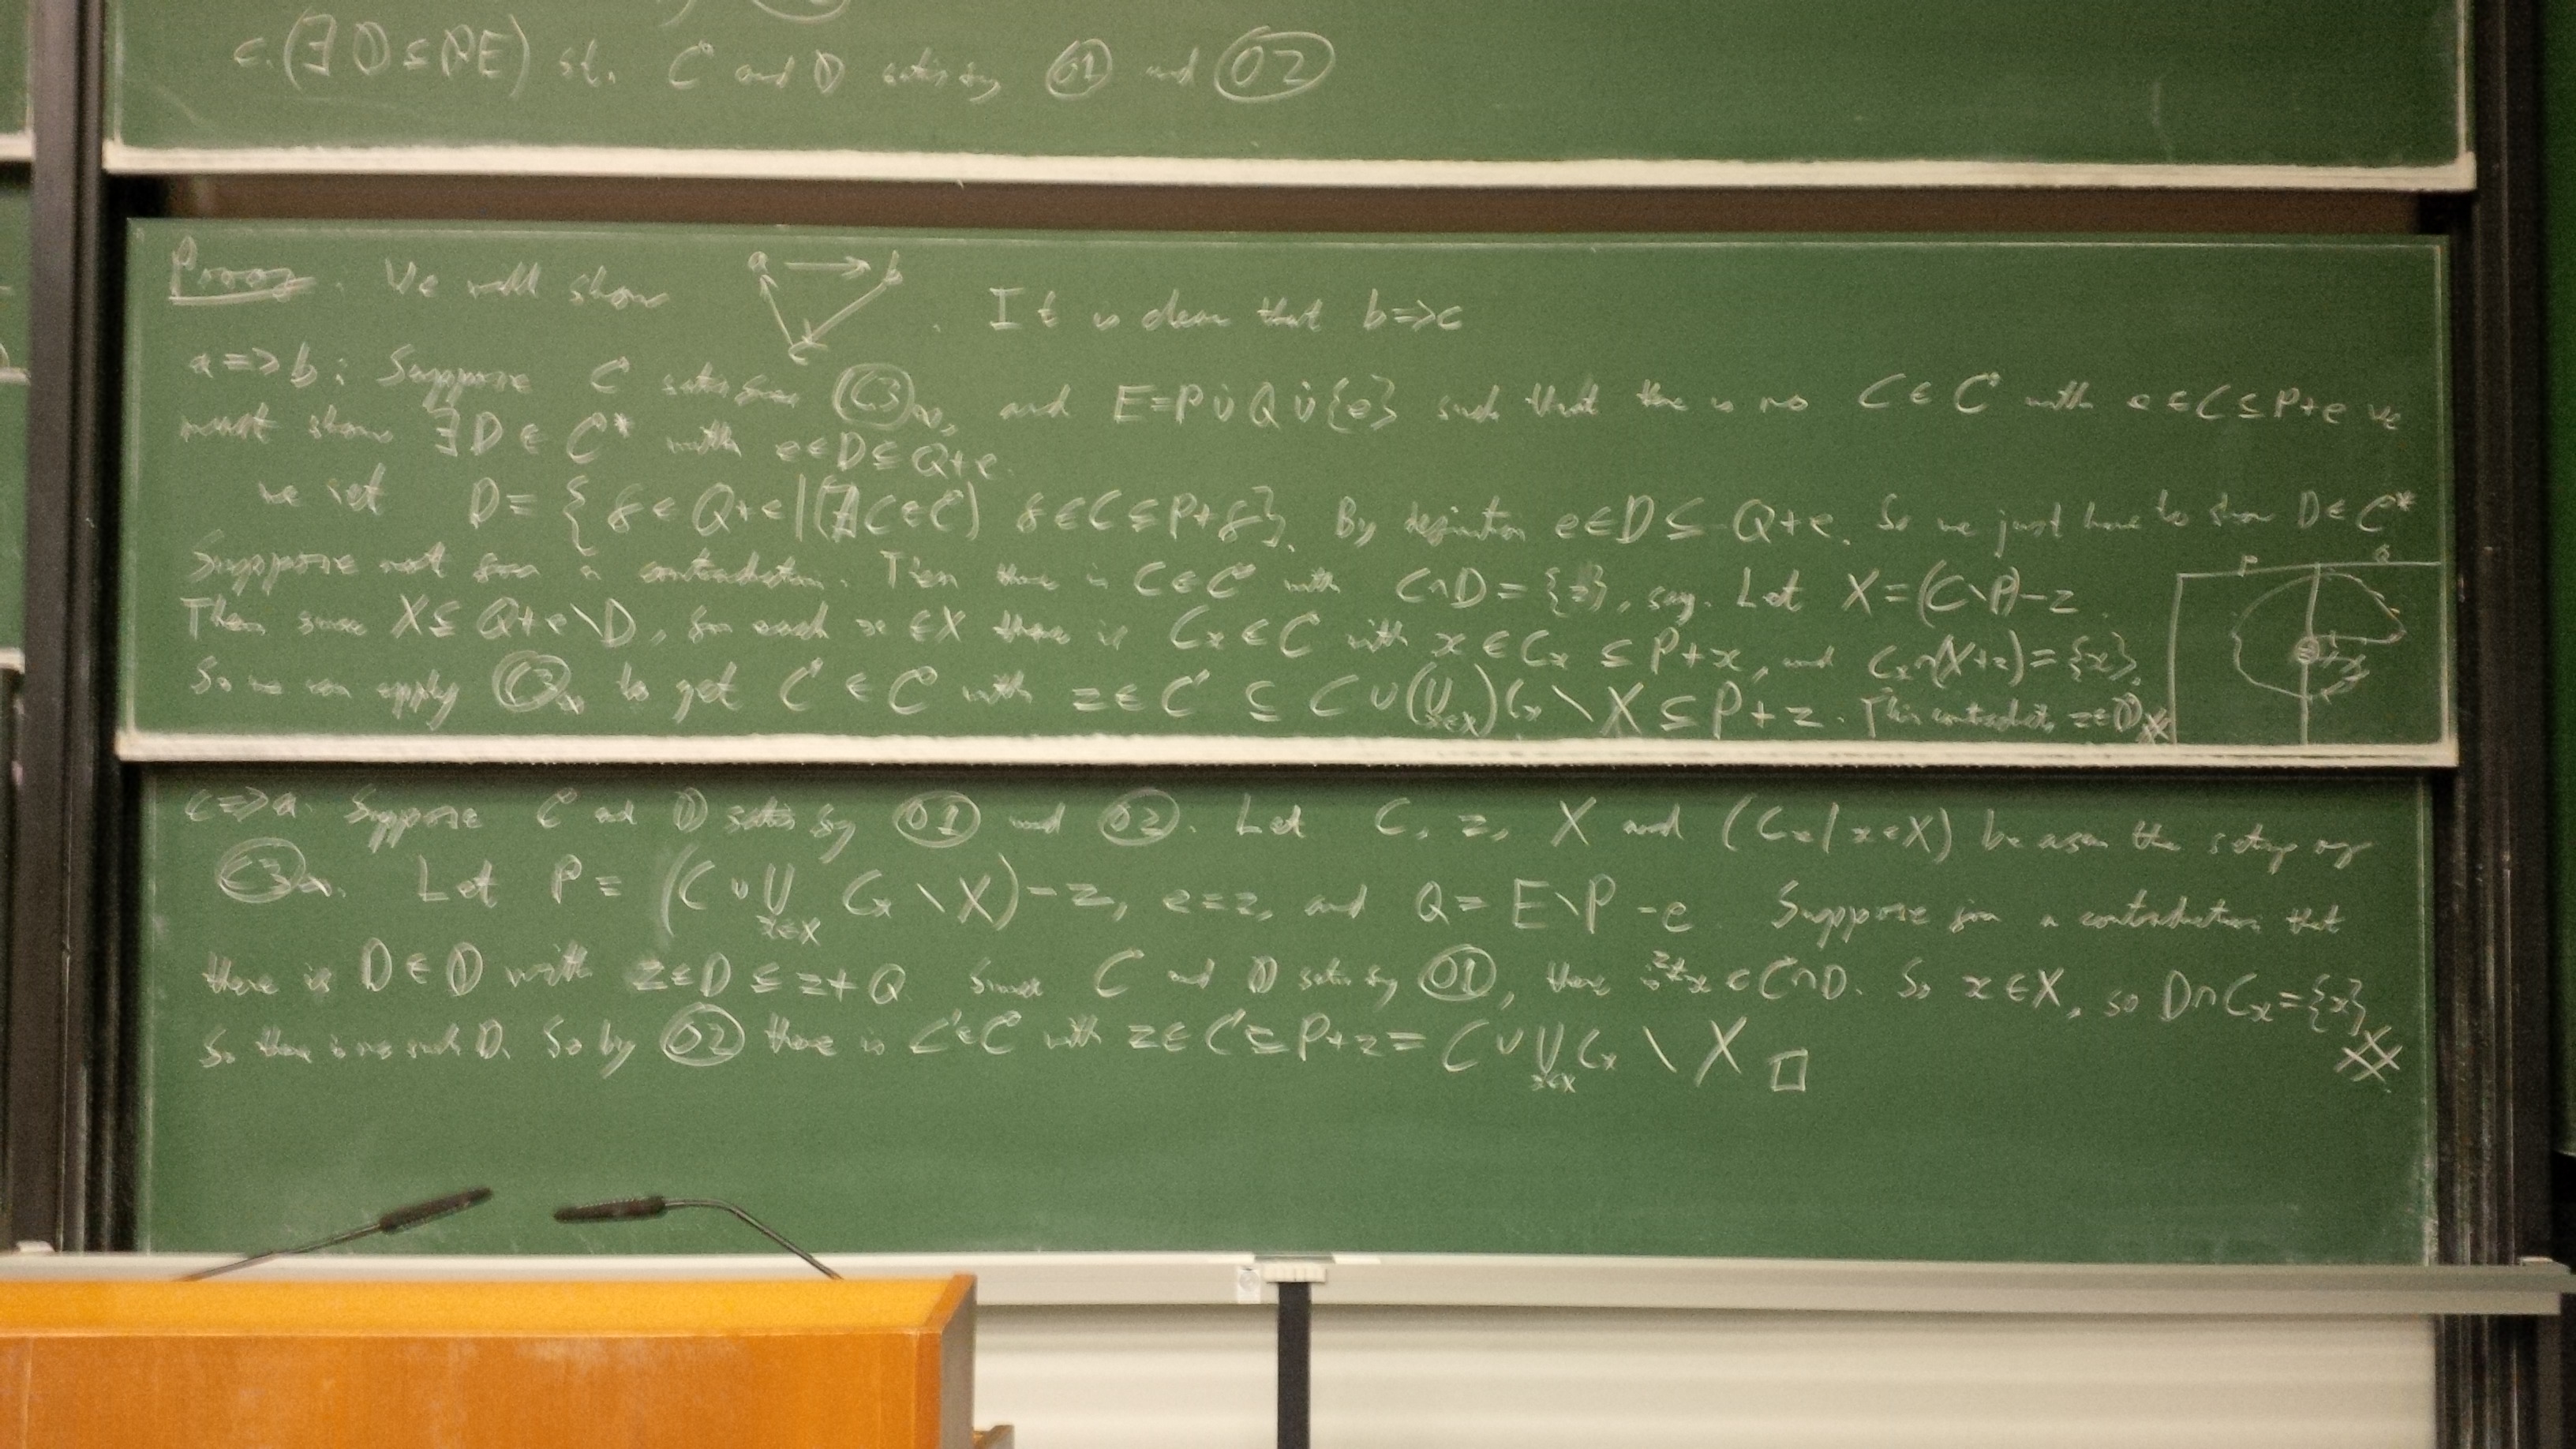 c. (∃ D ⊆ PE) st. C and D satisfy O1 and O2
Proof. We will show a → b → c → a. It is clear that b ⇒ c
a ⇒ b: Suppose C satisfies C3∞, and E = P ∪̇ Q ∪̇ {e} such that there is no C ∈ C with e ∈ C ⊆ P+e we
must show ∃ D ∈ C* with e ∈ D ⊆ Q+e.
We set D = { f ∈ Q+e | (∄ C ∈ C) f ∈ C ⊆ P+f }. By definition e ∈ D ⊆ Q+e. So we just have to show D ∈ C*
Suppose not for a contradiction. Then there is C ∈ C with C ∩ D = {z}, say. Let X = (C \ P) − z.
Then since X ⊆ Q+e \ D, for each x ∈ X there is C_x ∈ C with x ∈ C_x ⊆ P+x, and C_x ∩ (X+z) = {x}.
So we can apply C3∞ to get C' ∈ C with z ∈ C' ⊆ C ∪ (⋃_{x∈X}) C_x \ X ⊆ P + z. This contradicts z ∈ D
P Q
c ⇒ a. Suppose C and D satisfy O1 and O2. Let C, z, X and (C_x | x ∈ X) be as in the setup of
C3∞. Let P = (C ∪ ⋃_{x∈X} C_x \ X) − z, e = z, and Q = E \ P − e Suppose for a contradiction that
there is D ∈ D with z ∈ D ⊆ z + Q. Since C and D satisfy O1, there is z ≠ x ∈ C ∩ D. So x ∈ X, so D ∩ C_x = {x}
So there is no such D. So by O2 there is C' ∈ C with z ∈ C' ⊆ P + z = C ∪ ⋃_{x∈X} C_x \ X □